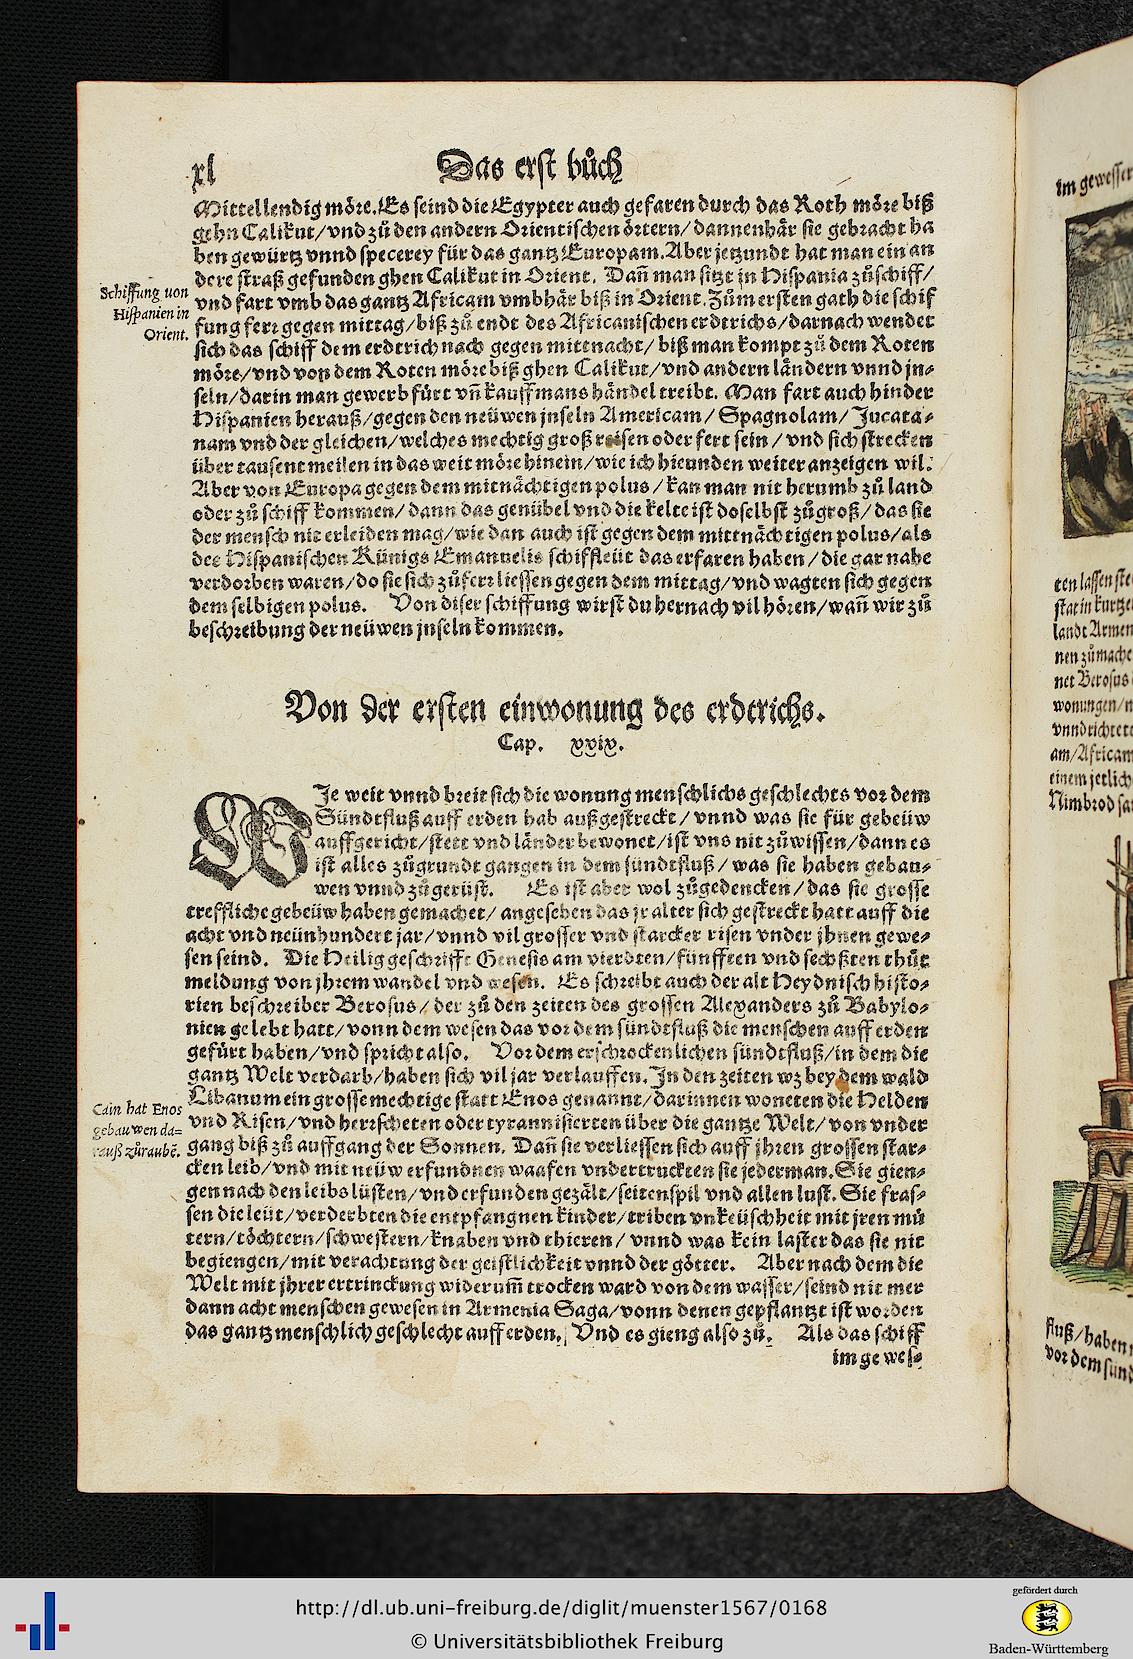 xl
Das erst bůch
Mittellendig möre. Es seind die Egypter auch gefaren durch das Roth möre biß
gehn Calikut/ vnd zů den andern Orientischen örtern/ dannenhär sie gebracht ha
ben gewürtz vnnd specerey für das gantz Europam. Aber jetzundt hat man ein an
dere straß gefunden ghen Calikut in Orient. Dañ man sitzt in Hispania zůschiff/
Schiffung von
Hispanien in
Orient.
vnd fart vmb das gantz Africam vmbhär biß in Orient. Zům ersten gath die schif
fung ferr gegen mittag/ biß zů endt des Africanischen erdtrichs/ darnach wendet
sich das schiff dem erdtrich nach gegen mittnacht/ biß man kompt zů dem Roten
möre/ vnd von dem Roten möre biß ghen Calikut/ vnd andern ländern vnnd jn-
seln/ darin man gewerb fürt vñ kauffmans händel treibt. Man fart auch hinder
Hispanien herauß/ gegen den neüwen jnseln Americam/ Spagnolam/ Jucata-
nam vnd der gleichen/ welches mechtig groß reisen oder fert sein/ vnd sich strecken
über tausent meilen in das weit möre hinein/ wie ich hieunden weiter anzeigen wil.
Aber von Europa gegen dem mitnächtigen polus/ kan man nit herumb zů land
oder zů schiff kommen/ dann das genübel vnd die kelte ist doselbst zůgroß/ das sie
der mensch nit erleiden mag/ wie dan auch ist gegen dem mittnächtigen polus/ als
des Hispanischen Künigs Emanuelis schiffleüt das erfaren haben/ die gar nahe
verdorben waren/ do sie sich zůferr liessen gegen dem mittag/ vnd wagten sich gegen
dem selbigen polus. Von diser schiffung wirst du hernach vil hören/ wañ wir zů
beschreibung der neüwen jnseln kommen.
Von der ersten einwonung des erderichs.
Cap. xxix.
WJe weit vnnd breit sich die wonung menschlichs geschlechts vor dem
Sündtfluß auff erden hab außgestreckt/ vnnd was sie für gebeüw
auffgericht/ stett vnd länder bewonet/ ist vns nit zůwissen/ dann es
ist alles zůgrundt gangen in dem sündtfluß/ was sie haben gebau-
wen vnnd zůgerüst. Es ist aber wol zůgedencken/ das sie grosse
treffliche gebeüw haben gemachet/ angesehen das jr alter sich gestreckt hatt auff die
acht vnd neünhundert jar/ vnnd vil grosser vnd starcker risen vnder jhnen gewe-
sen seind. Die Heilig geschrifft Genesis am vierdten/ fünfften vnd sechßten thůt
meldung von jhrem wandel vnd wesen. Es schreibt auch der alt Heydnisch histo-
rien beschreiber Berosus/ der zů den zeiten des grossen Alexanders zů Babylo-
nien gelebt hatt/ vonn dem wesen das vor dem sündtfluß die menschen auff erden
gefürt haben/ vnd spricht also. Vor dem erschrockenlichen sündtfluß/ in dem die
gantz Welt verdarb/ haben sich vil jar verlauffen. Jn den zeiten wz bey dem wald
Libanum ein grosse mechtige statt Enos genannt/ darinnen woneten die Helden
Cain hat Enos
gebauwen da-
rauß zůraubē.
vnd Risen/ vnd herrscheten oder tyrannisierten über die gantze Welt/ von vnder
gang biß zů auffgang der Sonnen. Dañ sie verliessen sich auff jhren grossen star-
cken leib/ vnd mit neüw erfundnen waafen vndertruckten sie jederman. Sie gien-
gen nach den leibs lüsten/ vnd erfunden gezält/ seitenspil vnd allen lust. Sie fras-
sen die leüt/ verderbten die entpfangnen kinder/ triben vnkeüschheit mit jren mů
tern/ töchtern/ schwestern/ knaben vnd thieren/ vnnd was kein laster das sie nit
begiengen/ mit verachtung der geistlichkeit vnnd der götter. Aber nach dem die
Welt mit jhrer ertrinckung widerum̃ trocken ward von dem wasser/ seind nit mer
dann acht menschen gewesen in Armenia Saga/ vonn denen gepflantzt ist worden
das gantz menschlich geschlecht auff erden. Vnd es gieng also zů. Als das schiff
im gewes-
im gewesser
ten lassen
stat in kurtze
landt Armen
nen zůmache
net Berosus
wonungen/
vnnd richtete
am/ African
einem jetlich
Nimbrod
fluß/ haben
vor dem sünd
http://dl.ub.uni-freiburg.de/diglit/muenster1567/0168
© Universitätsbibliothek Freiburg
gefördert durch
Baden-Württemberg